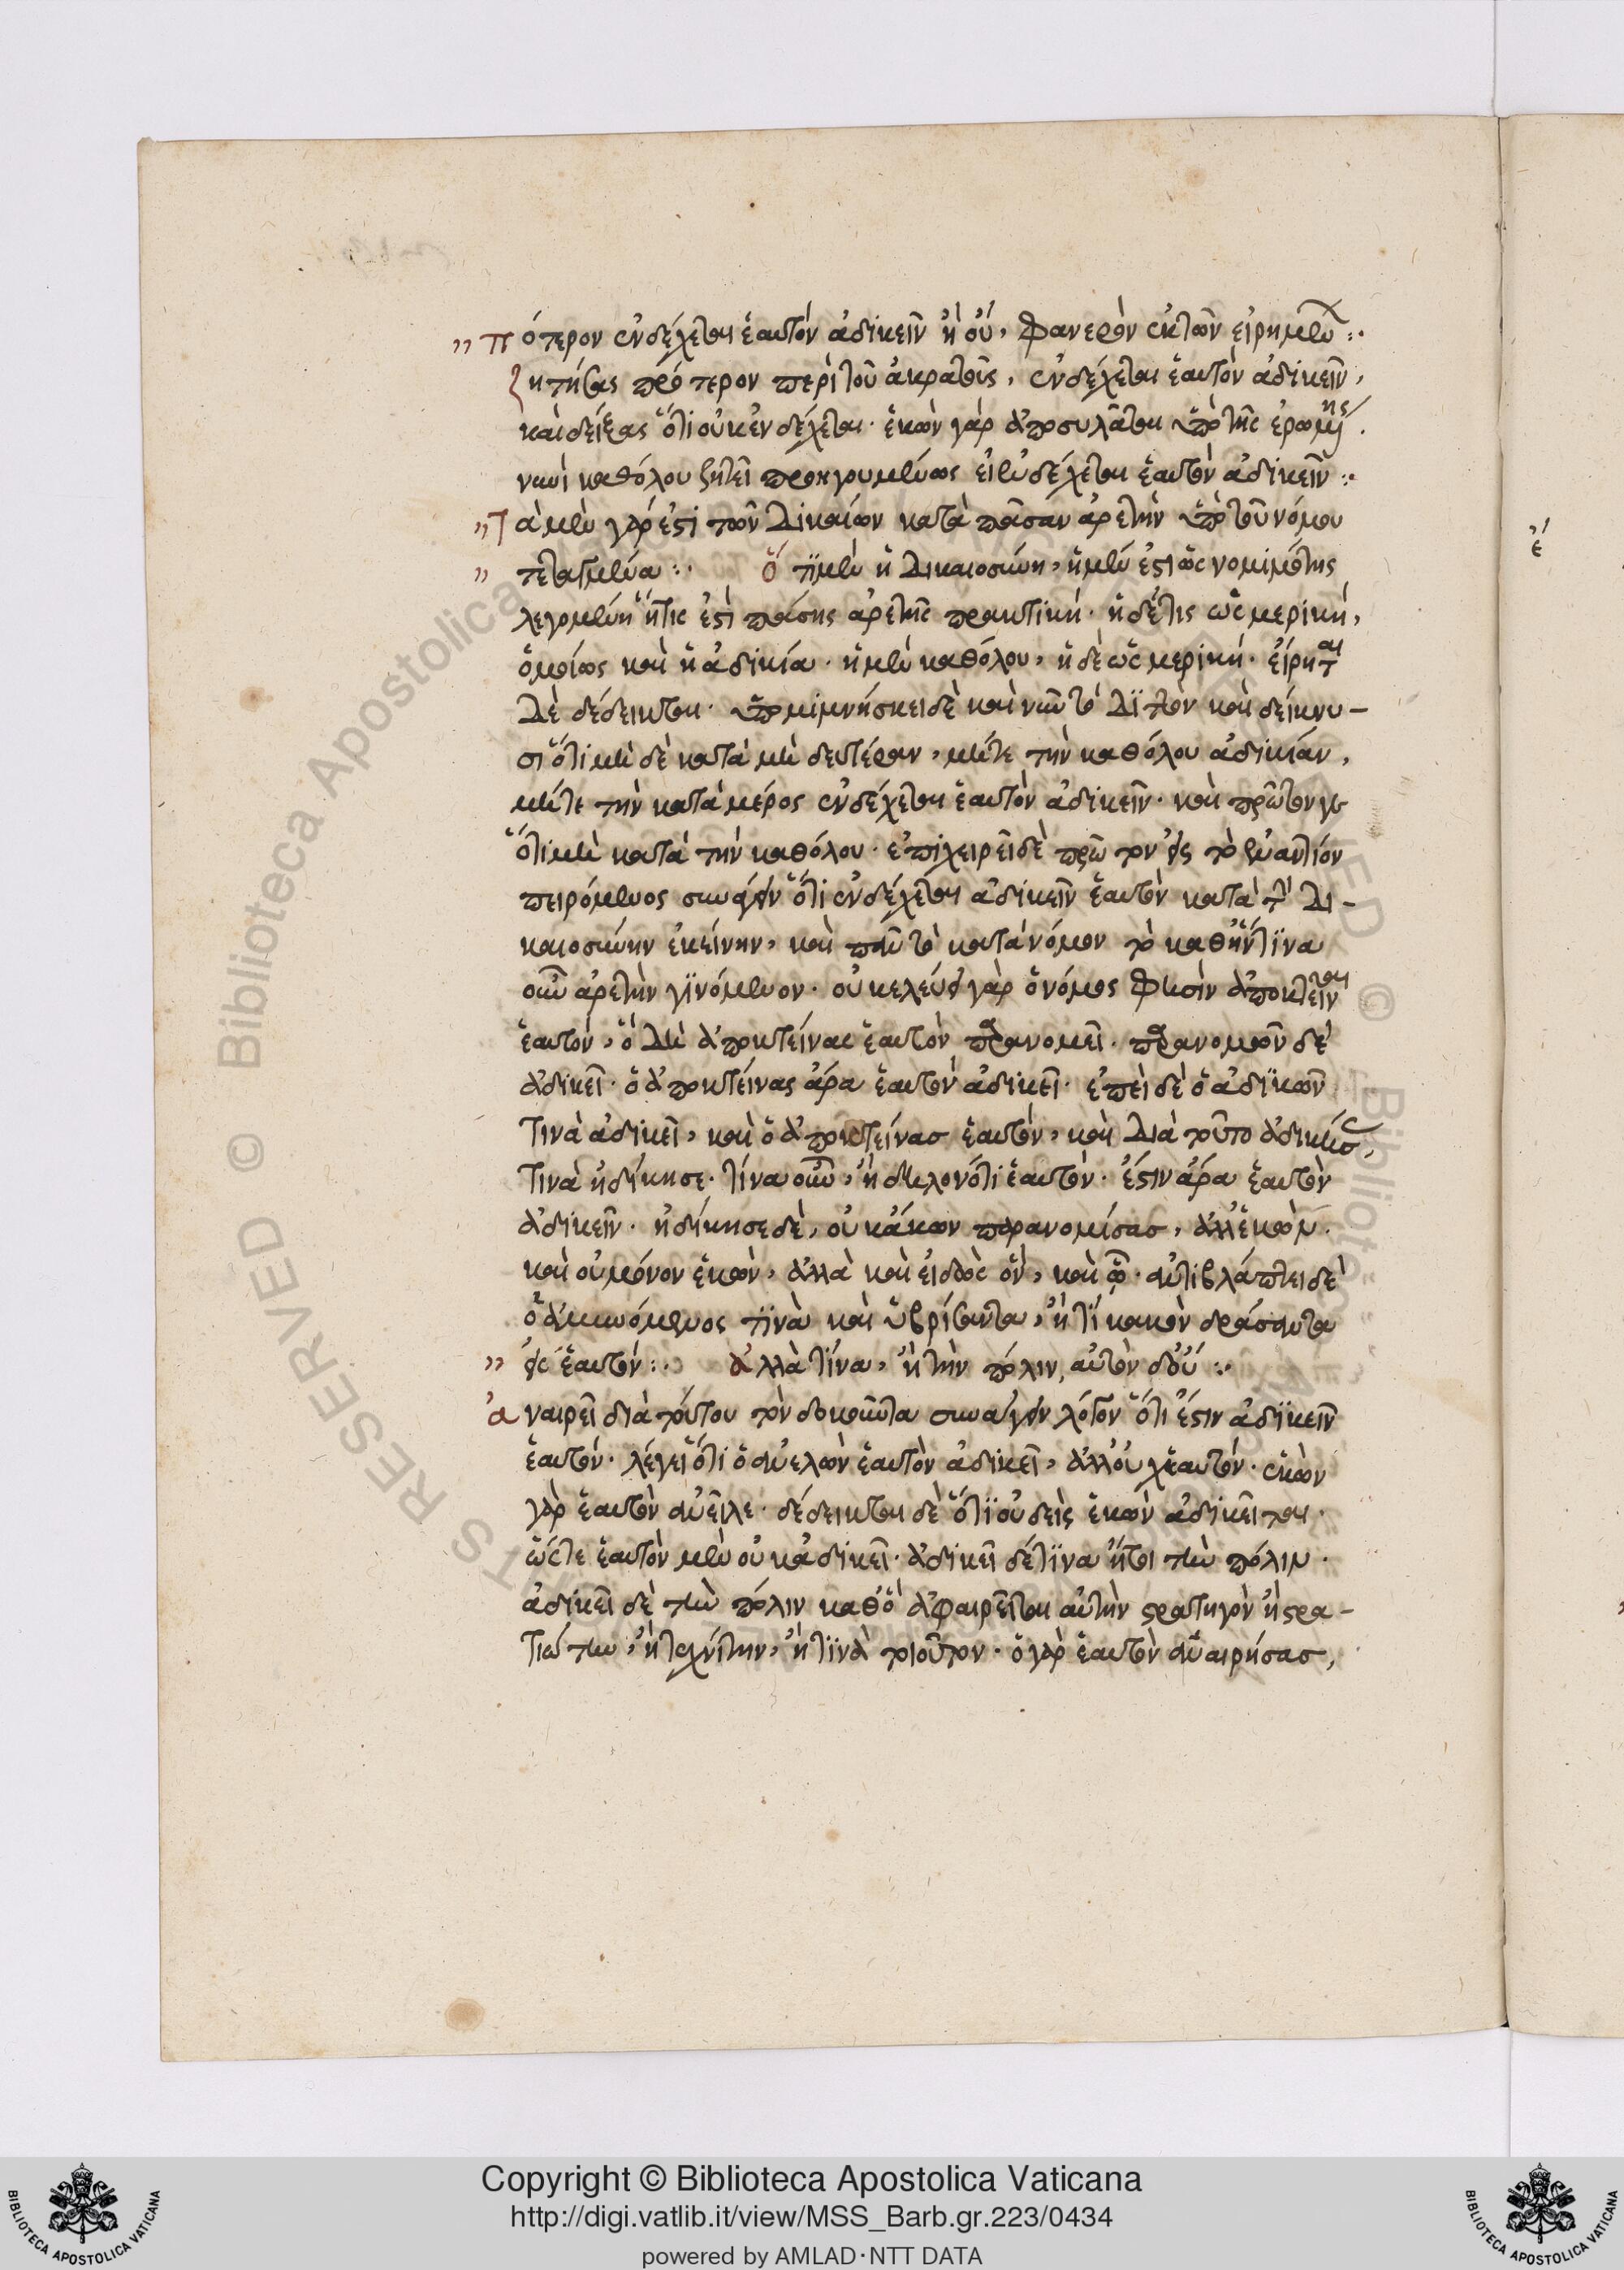 πότερον ἐνδέχεται ἑαυτὸν ἀδικεῖν ἢ οὔ, φανερὸν ἐκ τῶν εἰρημένων :·
ζητήσας πρότερον περὶ τοῦ ἀκρατοῦς, ἐνδέχεται ἑαυτὸν ἀδικεῖν,
καὶ δείξας ὅτι οὐκ ἐνδέχεται· ἑκὼν γὰρ ἀποσυλᾶται ὑπὸ τῆς ἐρωμένης·
νυνὶ καθόλου ζητεῖ προηγουμένως εἰ ἐνδέχεται ἑαυτὸν ἀδικεῖν :·
τὰ μὲν γάρ ἐστι τῶν δικαίων κατὰ πᾶσαν ἀρετὴν ὑπὸ τοῦ νόμου
τεταγμένα :· ὅτι μὲν ἡ δικαιοσύνη, ἡ μέν ἐστι ὡς νομιμότης
λεγομένη ἥτις ἐστὶ πάσης ἀρετῆς πρακτική· ἡ δέ τις ὡς μερική,
ὁμοίως καὶ ἡ ἀδικία· ἡ μὲν καθόλου, ἡ δὲ ὡς μερική· εἴρηται
δὲ δέδεικται· ὑπομιμνήσκει δὲ καὶ νῦν τὸ διττὸν καὶ δείκνυ-
σι ὅτι μὴ δὲ κατὰ μὴ δευτέραν, μήτε τὴν καθόλου ἀδικίαν,
μήτε τὴν κατὰ μέρος ἐνδέχεται ἑαυτὸν ἀδικεῖν· καὶ πρῶτον γε
ὅτι μὴ κατὰ τὴν καθόλου· ἐπιχειρεῖ δὲ πρῶτον εἰς τὸ ἐναντίον
πειρόμενος συνάγειν ὅτι ἐνδέχεται ἀδικεῖν ἑαυτὸν κατὰ τὴν δι-
καιοσύνην ἐκείνην, καὶ πᾶν τὸ κατὰ νόμον τὸ καθ' ἥντινα
οὖν ἀρετὴν γινόμενον· οὐ κελεύει γὰρ ὁ νόμος φησὶν ἀποκτεῖναι
ἑαυτόν, ὁ δὴ ἀποκτείνας ἑαυτὸν παρανομεῖ· παρανομῶν δὲ
ἀδικεῖ· ὁ ἀποκτείνας ἄρα ἑαυτὸν ἀδικεῖ· ἐπεὶ δὲ ὁ ἀδικῶν
τινὰ ἀδικεῖ, καὶ ὁ ἀποκτείνας ἑαυτόν, καὶ διὰ τοῦτο ἀδικήσας,
τινὰ ἠδίκησε· τίνα οὖν, ἢ δηλονότι ἑαυτόν· ἔστιν ἄρα ἑαυτὸν
ἀδικεῖν· ἠδίκησε δὲ, οὐκ ἄκων παρανομίσας, ἀλλ' ἑκών·
καὶ οὐ μόνον ἑκὼν, ἀλλὰ καὶ εἰδὼς ὃν, καὶ ᾧ· ἀντιβλάπτει δὲ
ὁ ἀμυνόμενος τινὰ καὶ ὑβρίσαντα, ἢ τί κακὸν δράσαντα
εἰς ἑαυτόν :· ἀλλὰ τίνα, ἢ τὴν πόλιν, αὐτὸν δ' οὔ :·
ἀναιρεῖ διὰ τούτου τὸν δοκοῦντα συνάγειν λόγον ὅτι ἔστιν ἀδικεῖν
ἑαυτόν· λέγει ὅτι ὁ ἀνελὼν ἑαυτὸν ἀδικεῖ, ἀλλ' οὐχ ἑαυτόν· ἑκὼν
γὰρ ἑαυτὸν ἀνεῖλε· δέδεικται δὲ ὅτι οὐδεὶς ἑκὼν ἀδικεῖται·
ὥστε ἑαυτὸν μὲν οὐκ ἀδικεῖ· ἀδικεῖ δέ τινα ἤτοι τὴν πόλιν·
ἀδικεῖ δὲ τὴν πόλιν καθ' ὃ ἀφαιρεῖται αὐτὴν στρατηγὸν ἢ στρα-
τιώτην, ἢ τεχνίτην, ἢ τινὰ τοιοῦτον· ὁ γὰρ ἑαυτὸν ἀναιρήσας,
ἐ
Copyright © Biblioteca Apostolica Vaticana
http://digi.vatlib.it/view/MSS_Barb.gr.223/0434
powered by AMLAD·NTT DATA